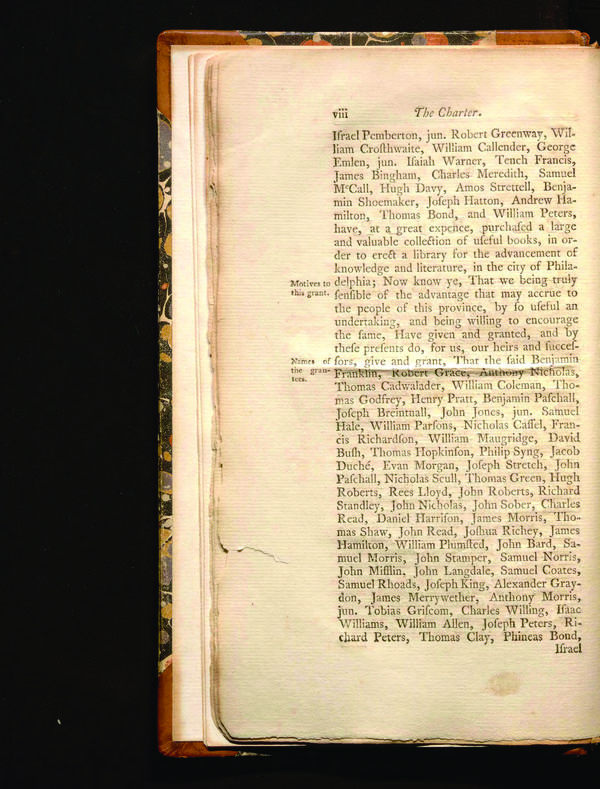 viii The Charter.
Iſrael Pemberton, jun. Robert Greenway, Wil-
liam Croſthwaite, William Callender, George
Emlen, jun. Iſaiah Warner, Tench Francis,
James Bingham, Charles Meredith, Samuel
McCall, Hugh Davy, Amos Strettell, Benja-
min Shoemaker, Joſeph Hatton, Andrew Ha-
milton, Thomas Bond, and William Peters,
have, at a great expence, purchaſed a large
and valuable collection of uſeful books, in or-
der to erect a library for the advancement of
knowledge and literature, in the city of Phila-
Motives to
this grant.
delphia; Now know ye, That we being truly
ſenſible of the advantage that may accrue to
the people of this province, by ſo uſeful an
undertaking, and being willing to encourage
the ſame, Have given and granted, and by
theſe preſents do, for us, our heirs and succeſ-
Names of
the gran-
tees.
ſors, give and grant, That the ſaid Benjamin
Franklin, Robert Grace, Anthony Nicholas,
Thomas Cadwalader, William Coleman, Tho-
mas Godfrey, Henry Pratt, Benjamin Paſchall,
Joſeph Breintnall, John Jones, jun. Samuel
Hale, William Parſons, Nicholas Caſſel, Fran-
cis Richardſon, William Maugridge, David
Buſh, Thomas Hopkinſon, Philip Syng, Jacob
Duché, Evan Morgan, Joſeph Stretch, John
Paſchall, Nicholas Scull, Thomas Green, Hugh
Roberts, Rees Lloyd, John Roberts, Richard
Standley, John Nicholas, John Sober, Charles
Read, Daniel Harriſon, James Morris, Tho-
mas Shaw, John Read, Joſhua Richey, James
Hamilton, William Plumſted, John Bard, Sa-
muel Morris, John Stamper, Samuel Norris,
John Mifflin, John Langdale, Samuel Coates,
Samuel Rhoads, Joſeph King, Alexander Gray-
don, James Merrywether, Anthony Morris,
jun. Tobias Griſcom, Charles Willing, Iſaac
Williams, William Allen, Joſeph Peters, Ri-
chard Peters, Thomas Clay, Phineas Bond,
Iſrael